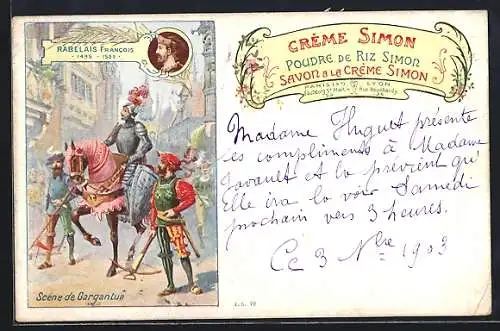 RABELAIS FRANÇOIS
CRÈME SIMON
POUDRE DE RIZ SIMON
SAVON A LA CRÈME SIMON
PARIS LYON
Madame Huguet présente
ses compliments à Madame
et la prévient qu'
Elle ira la voir Samedi
prochain vers 3 heures.
Ce 3 Nbre 1903
Scène de Gargantua